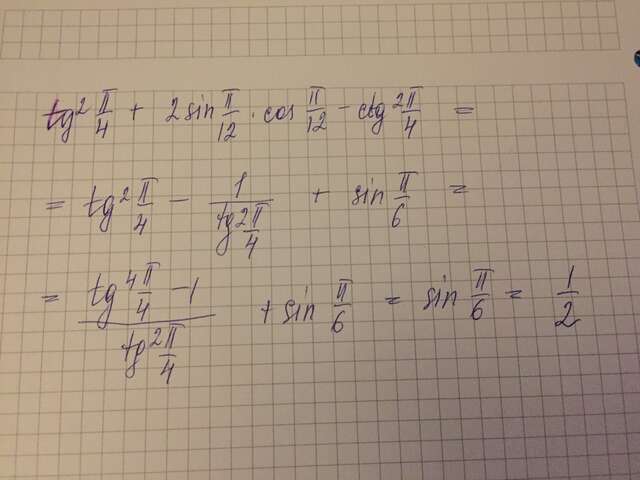 tg² π/4 + 2 sin π/12 · cos π/12 − ctg² π/4 =
= tg² π/4 − 1/(tg² π/4) + sin π/6 =
= (tg⁴ π/4 − 1)/(tg² π/4) + sin π/6 = sin π/6 = 1/2